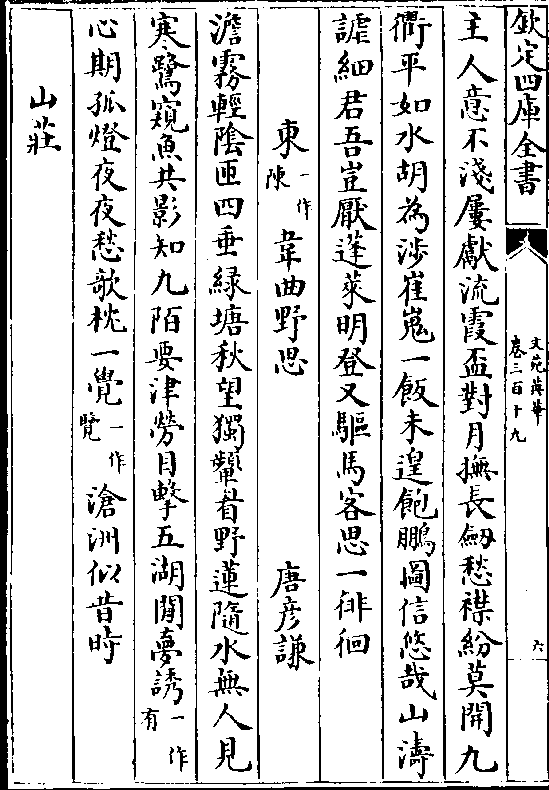 欽定四庫全書
文苑英華
卷三百十九
六
主人意不淺屢獻流霞盃對月撫長劒愁襟紛莫開九
衢平如水胡為涉崔嵬一飯未遑飽鵬圖信悠哉山濤
謔細君吾豈厭蓬萊明登又驅馬客思一徘徊
東一作陳韋曲野思 唐彦謙
澹霧輕隂匝四垂緑塘秋望獨顰眉野蓮隨水無人見
寒鷺窺魚共影知九陌要津勞目擊五湖閒夢誘一作有
心期孤燈夜夜愁欹枕一覺一作覽滄洲似昔時
山莊